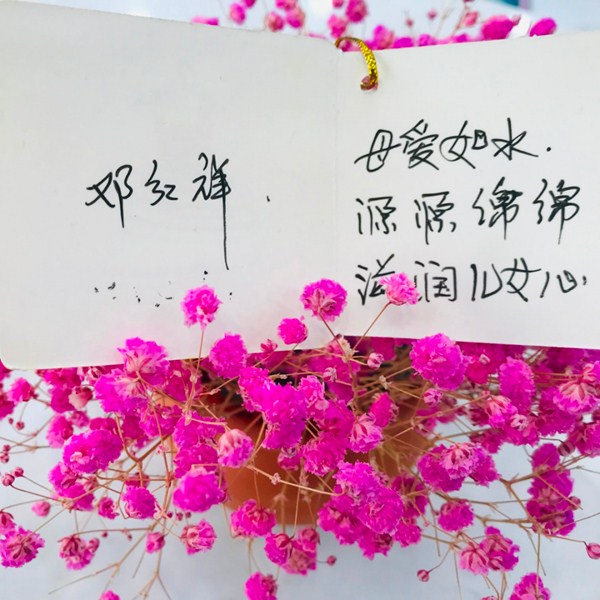 邓红祥.
母爱如水.
源源绵绵
滋润儿女心.